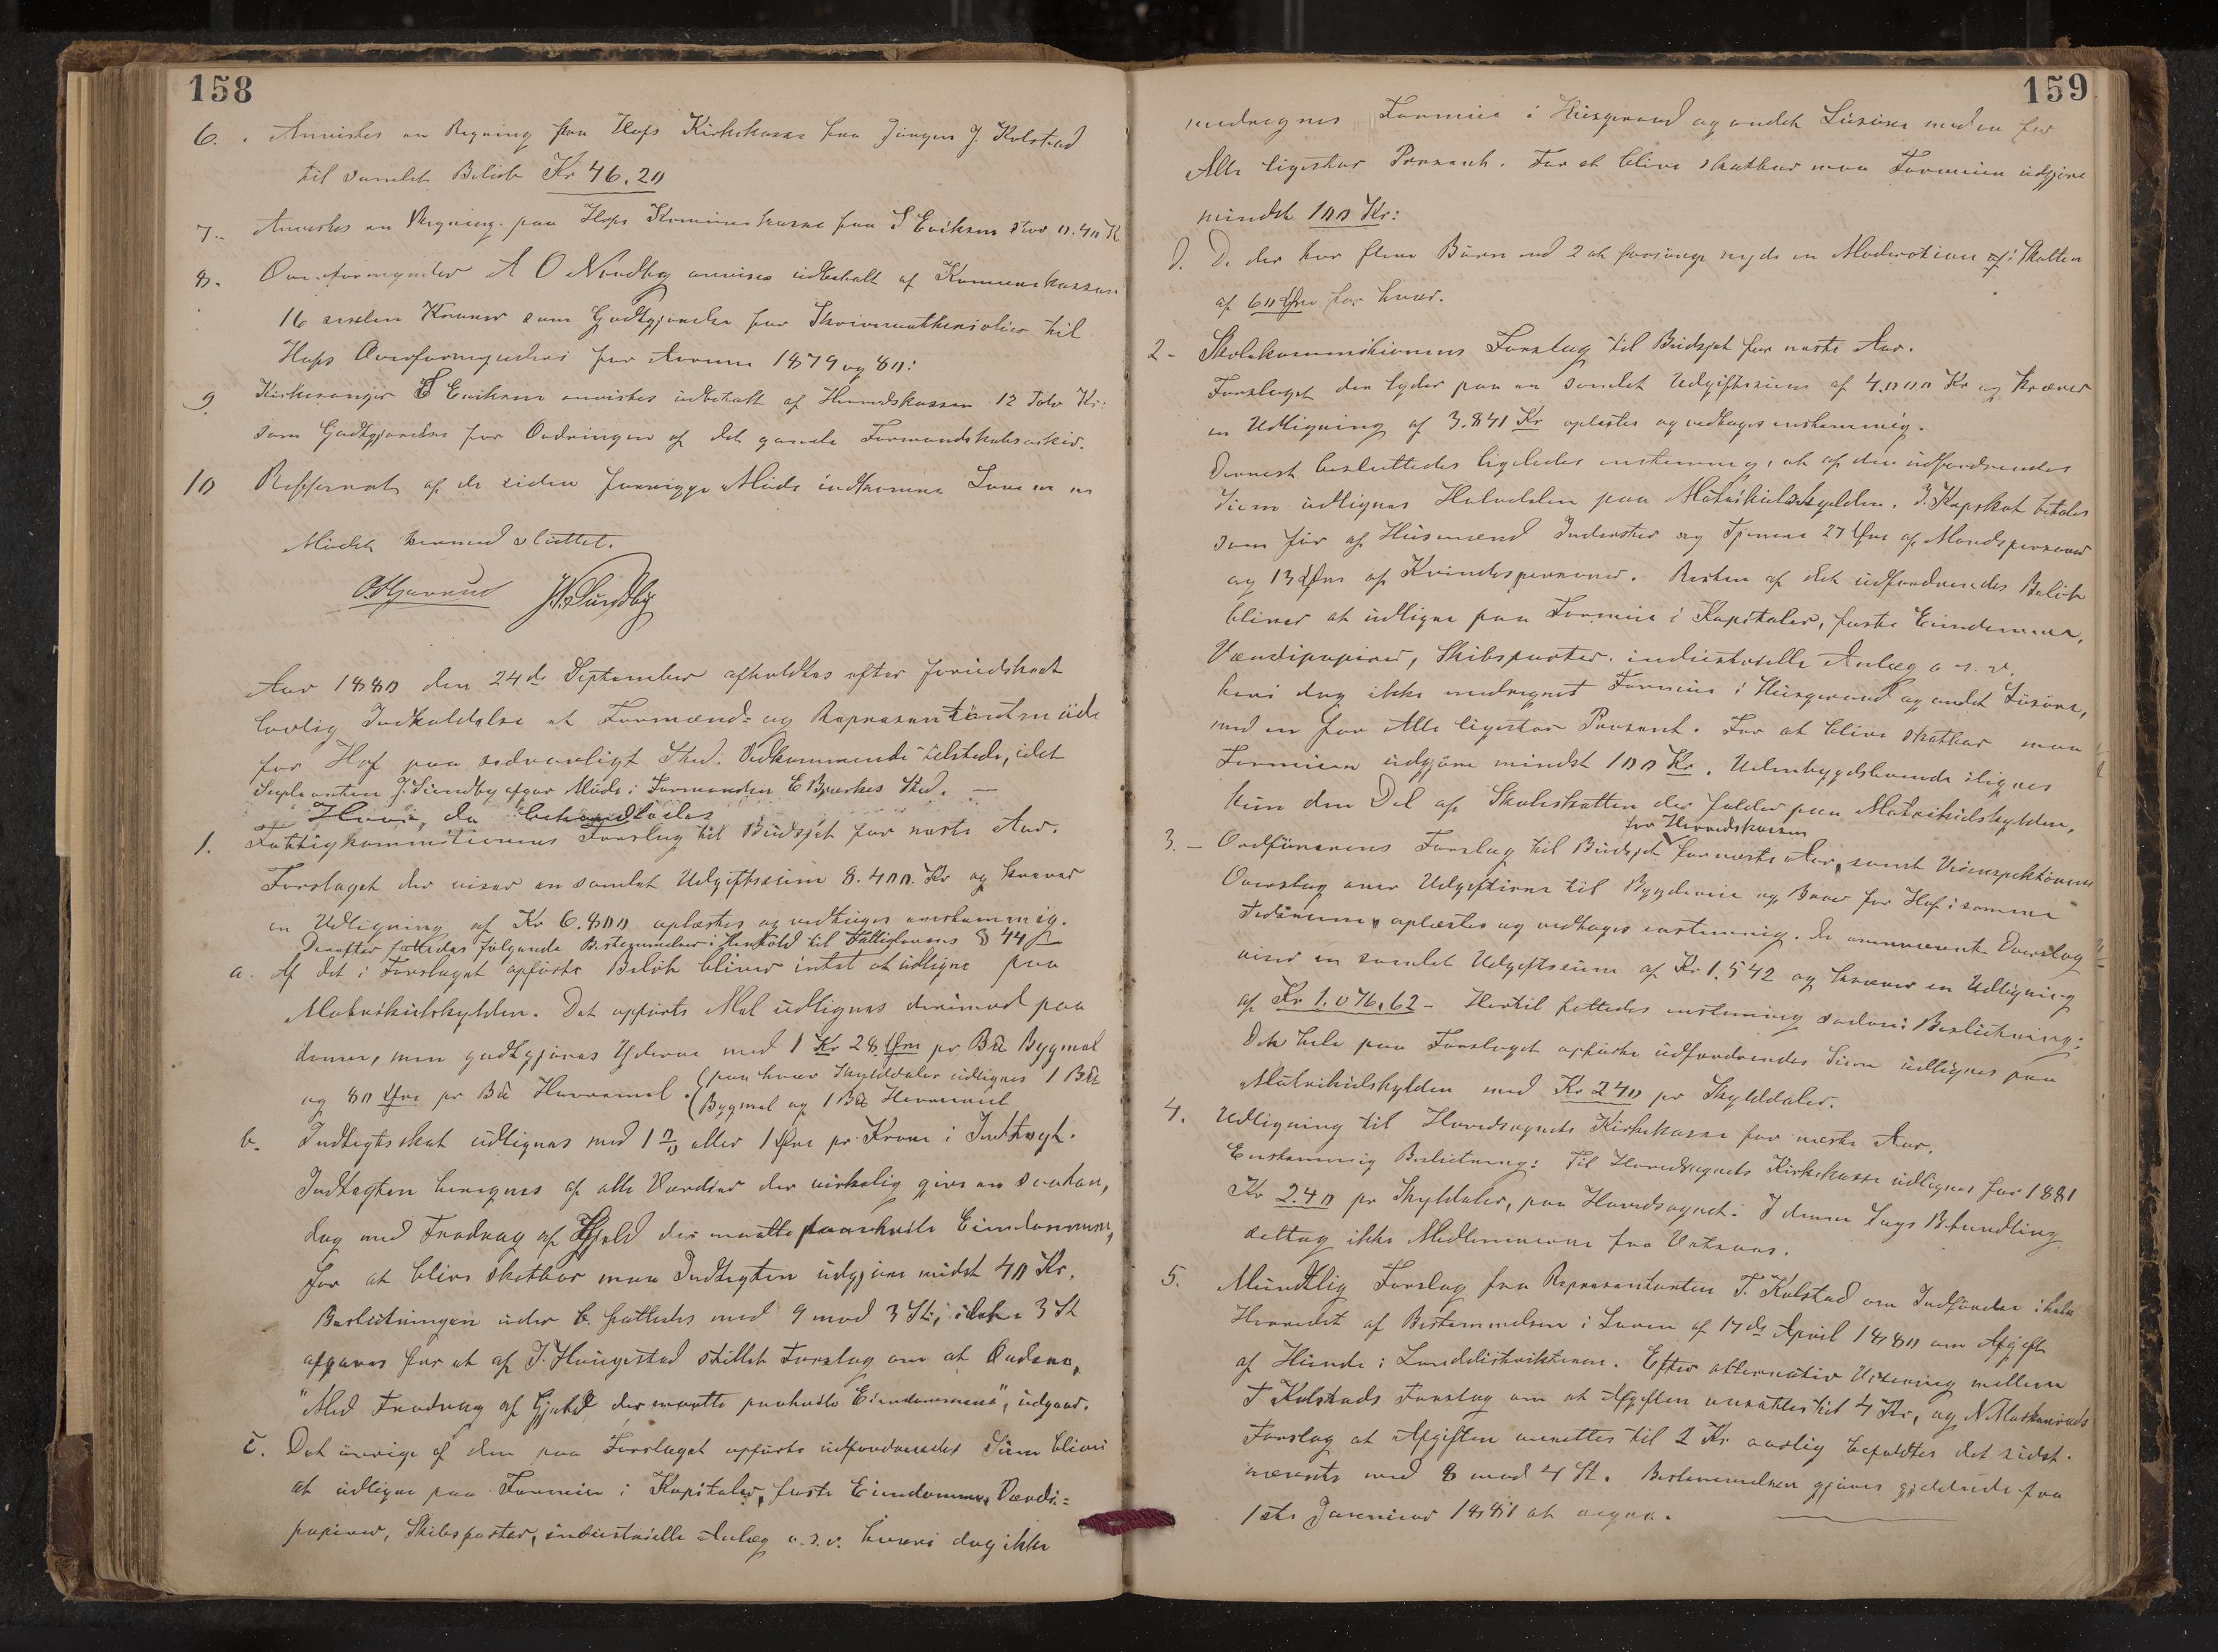 158
6. Anvistes en Regning paa Hofs Kirkekasse fra Jørgen J. Kolstad
til samlet Beløb Kr 46.20
7. Anvistes en Regning paa Hofs Kommunekasse fra S Eriksen stor 0.40 K
8. Overformynder A O Nordby anvises udbetalt af Kommunekassen
16 sexten Kroner som Godtgjørelse for Skrivematherialier til
Hofs Overformynderi for Aarene 1879 og 80:
9 Kirkesanger S Eriksen anvistes udbetalt af Herredskassen 12 Tolv Kr:
som Godtgjørelse for Ordningen af det gamle Formandskabsarkiv.
10 Refferat af de siden forrige Møde indkomne
Mødet hermed sluttet.
J. Sundby
Aar 1880 den 24de September afholdtes efter forudskeet
lovlig Indkaldelse et Formænd- og Repræsentantmøde
for Hof paa sædvanligt Sted. Vedkommende tilstede, idet
Supleanten J. Sundby afgav Møde i Formanden E Bjerkes Sted. —
Hvor, da behandledes
1. Fattigkommitionens Forslag til Budsjet for næste Aar.
Forslaget der viser en samlet Udgiftssum 8.400. Kr og kræver
en Udligning af Kr 6.800 oplæstes og vedtoges enstemmig.
Derefter fattedes følgende Bestemmelser i Henhold til Fattiglovens § 44
a. Af det i Forslaget opførte Beløb bliver intet at udligne paa
Matrikulskylden. Det opførte Mel udlignes derimod paa
denne, men godtgjøres Yderne med 1 Kr 28 Øre pr B℔ Bygmel
og 80 Øre pr B℔ Havremel. (paa hver Skylddaler udlignes 1 B℔
Bygmel og 1 B℔ Havremel
b. Indtegtsskat udlignes med 1 % eller 1 Øre pr Krone i Indtægt.
Indtægten beregnes af alle Værdier der virkelig give en saadan,
dog med Fradrag af Gjeld der maatte paahvile Eiendommene,
for at blive skatbar maa Indtegten udgjøre midst 40 Kr.
Beslutningen under b. fattedes med 9 mod 3 St; idet 3 St
afgaves for et af J. Haugestad stillet Forslag om at Ordene,
"Med Fradrag af Gjeld der maatte paahvile Eiendommene", udgaar.
c. Det øvrige af den paa Forslaget opførte udfordrendes Sum bliver
at udligne paa Formue i Kapitaler, faste Eiendomme, Værdi=
papirer, Skibsparter, industrielle Anlæg o.s.v. hvori dog ikke
159
medregnes Formue i Husgeraad og andet Løsøre med en for
Alle ligestor Prosent. For at blive skatbar maa Formuen udgjøre
mindst 100 Kr:
d. De der har flere Børn end 2 at forsørge nyde en Moderation i Skatten
af 60 Øre for hver.
2 - Skolekommitionens Forslag til Budsjet for næste Aar.
Forslaget der lyder paa en samlet Udgiftssum af 4.000 Kr og kræver
en Udligning af 3.841 Kr oplæstes og vedtoges enstemmig.
Dernæst besluttedes ligeledes enstemmig, at af den udfordrendes
Sum udlignes Halvdelen paa Matrikulskylden. I Kopskat betales
som før af Husmænd Inderster og Tjenere 27 Øre af Mandspersoner
og 13 Øre af Kvindespersoner. Resten af det udfordrendes Beløb
bliver at udligne paa Formue i Kapitaler, faste Eiendomme,
Værdipapirer, Skibsparter, industrielle Anlæg o.s.v.
hvori dog ikke medregnet Formue i Husgeraad og andet Løsøre,
med en for Alle ligestor Prosent. For at blive skatbar maa
Formuen udgjøre mindst 100 Kr. Udenbygdsboende ilignes
kun den Del af Skoleskatten der falder paa Matrikulskylden,
for Herredskassen
3. – Ordførerens Forslag til Budsjet for næste Aar, samt Veiinspektørens
Overslag over Udgifterne til Bygdeveie og Broer for Hof i samme
Tidsrum, oplæstes og vedtoges enstemmig. De omnævnte Overslag
viser en samlet Udgiftssum af Kr 1.542 og kræver en Udligning
af Kr 1.076.62 - Hertil fattedes enstemmig saadan Beslutning:
Det hele paa Forslaget opførte udfordrendes Sum udlignes paa
Matrikulskylden med Kr 240 pr Skylddaler.
4. Udligning til Hovedsognets Kirkekasse for næste Aar.
Enstemmig Beslutning: Til Hovedsognets Kirkekasse udlignes for 1881
Kr 2.40 pr Skyldaler, paa Hovedsognet. I denne Sags Behandling
deltog ikke Medlemmerne fra Vataas.
5. Mundtlig Forslag fra Repræsentanten T. Kolstad om Indførelse i hele
Herredet af Bestemmelsen i Loven af 17de April 1880 om Afgift
af Hunde i Landdistrikterne. Efter alternativ Votering mellem
T Kolstads Forslag om at Afgiften ansættes til 4 Kr, og
Forslag at Afgiften ansettes til 2 Kr aarlig befattes det sidst-
nævnte med 8 mod 4 St. Bestemmelsen gjøres gjeldende fra
1ste Januar 1881 at regne.